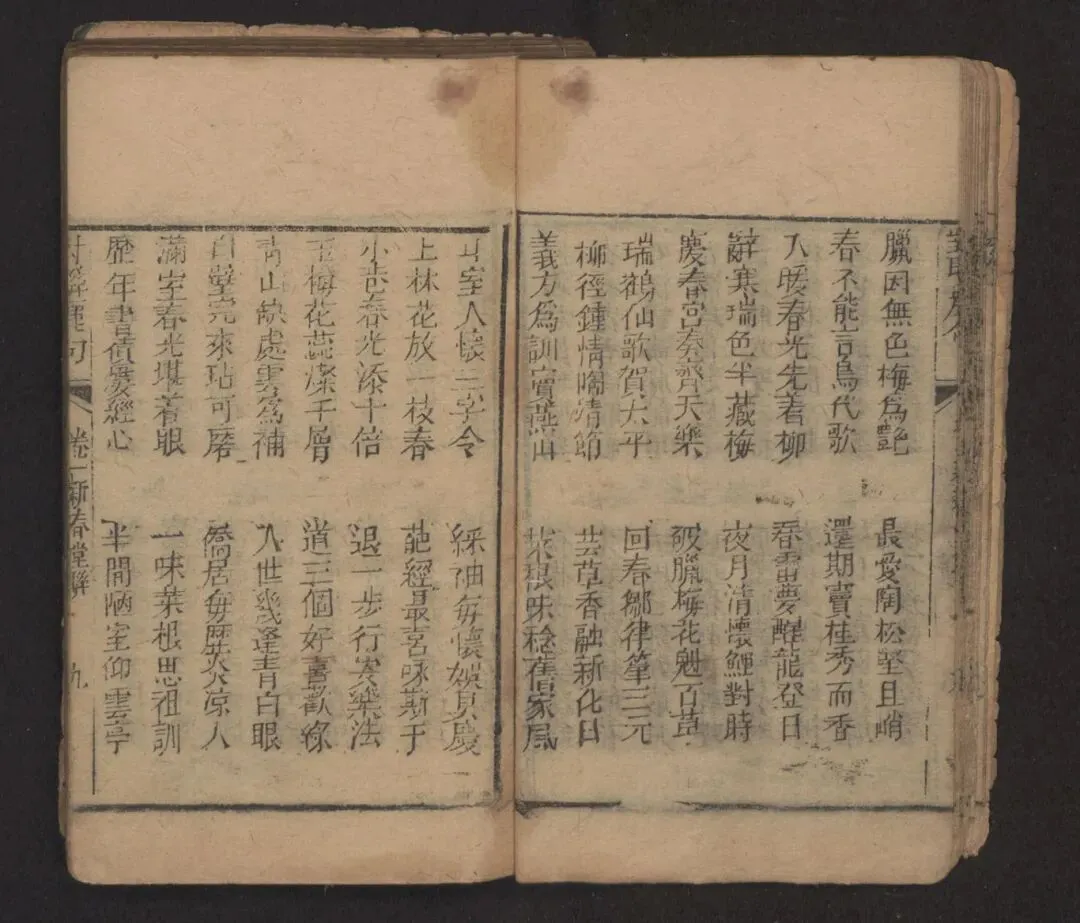 臘因無色梅為艷
最愛陶松堅且峭
春不能言鳥代歌
還期竇桂秀而香
入暖春光先著柳
春雷夢醒龍登日
辭寒瑞色半藏梅
夜月清懷鯉對時
慶春宮奏齊天樂
破臘梅花魁百草
瑞鶴仙歌賀太平
回春鄒律肇三元
柳徑鍾情 靖節
芸草香融新化日
義方為訓竇燕山
菜根味稔舊家風
室人懷三字令
綵袖每懷娛具慶
上林花放一枝春
葩經最喜咏斯于
小 春光添十倍
退一步行安樂法
玉梅花蕊 千層
道三個好喜歡緣
青山缺處雲為補
入世幾逢青白眼
白璧完來玷可磨
僑居每歷炎涼人
滿室春光堪着眼
一味菜根思祖訓
歷年書債愛經心
半間陋室仰雲亭
麗句
卷一新春堂聯
九